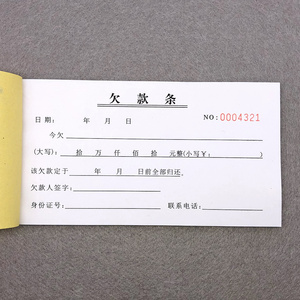 欠款条
日期: 年 月 日 NO:0004321
今欠
(大写): 拾 万 仟 佰 拾 元整(小写￥: )
该欠款定于 年 月 日前全部归还。
欠款人签字:
身份证号: 联系电话: